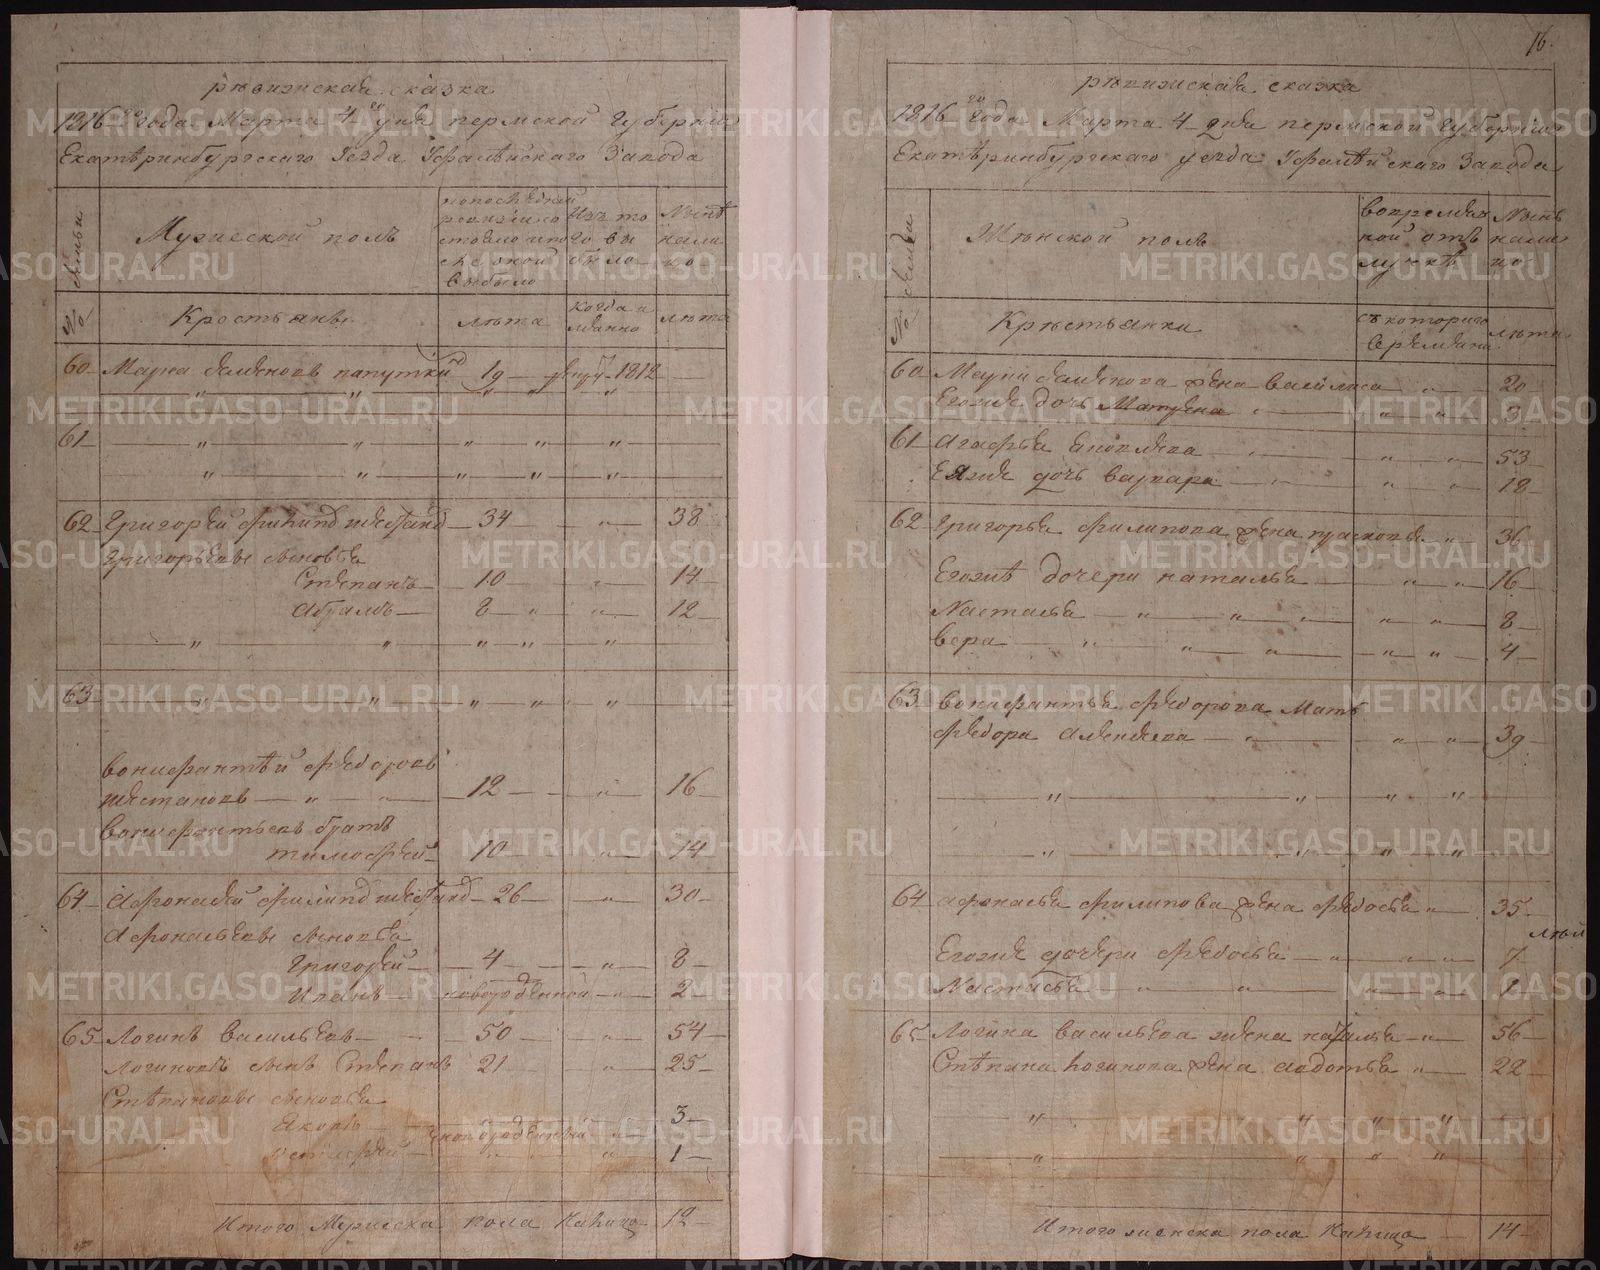 ревизская сказка
1816 го года Марта 4 го дня пермской Губернии
Екатеринбургскаго Уезда Уфалейскаго Завода
семьи
Мужеской полъ
Изъ то
го вы
было
Ныне
на ли
цо
№
Крестьяне
лета
когда и
лета
60 Марка Семенова 19 1812
61
62 Григорей Филипов Шестаков 34 38
Григорьевы сыновья
Степанъ 10 14
Абрамъ 8 12
63
Вонифантей Федоров
Шестаковъ 12 16
Вонифантьевъ братъ
тимофей 10 14
64 Афонасей Филипов Шестаков 26 30
Афонасьевы сыновья
Григорей 4 8
Иванъ новорожденной 2
65 Логинъ Васильевъ 50 54
Логиновъ сынъ Степанъ 21 25
Степановы сыновья
Яковъ 3
новорожденныи
1
Итого Мужеска пола Налицо 12
16
ревизская сказка
1816 го года Марта 4 дня пермской Губернии
Екатеринбургскаго уезда Уфалейскаго Завода
семьи
Женской полъ
во времян
ной отъ
лучке
Ныне
на ли
цо
№
Крестьянки
съ котораго
времяни
лета
60 Марки Семенова жена Василиса 20
Егоже дочь Матрена 3
61 Агафья Яковлева 53
Ея же дочь Варвара 18
62 Григорья Филипова жена прасковья 36
Егоже дочери наталья 16
Настасья 8
вера 4
63 Вонифантья Федорова Мать
Федора 39
64 Афонасья Филипова жена Федосья 35
Егоже дочери Федосья 7
Настасья 1
65 Логина Васильева жена 56
Степана Логинова жена Авдотья 22
Итого женска пола Налицо 14
METRIKI.GASO-URAL.RU